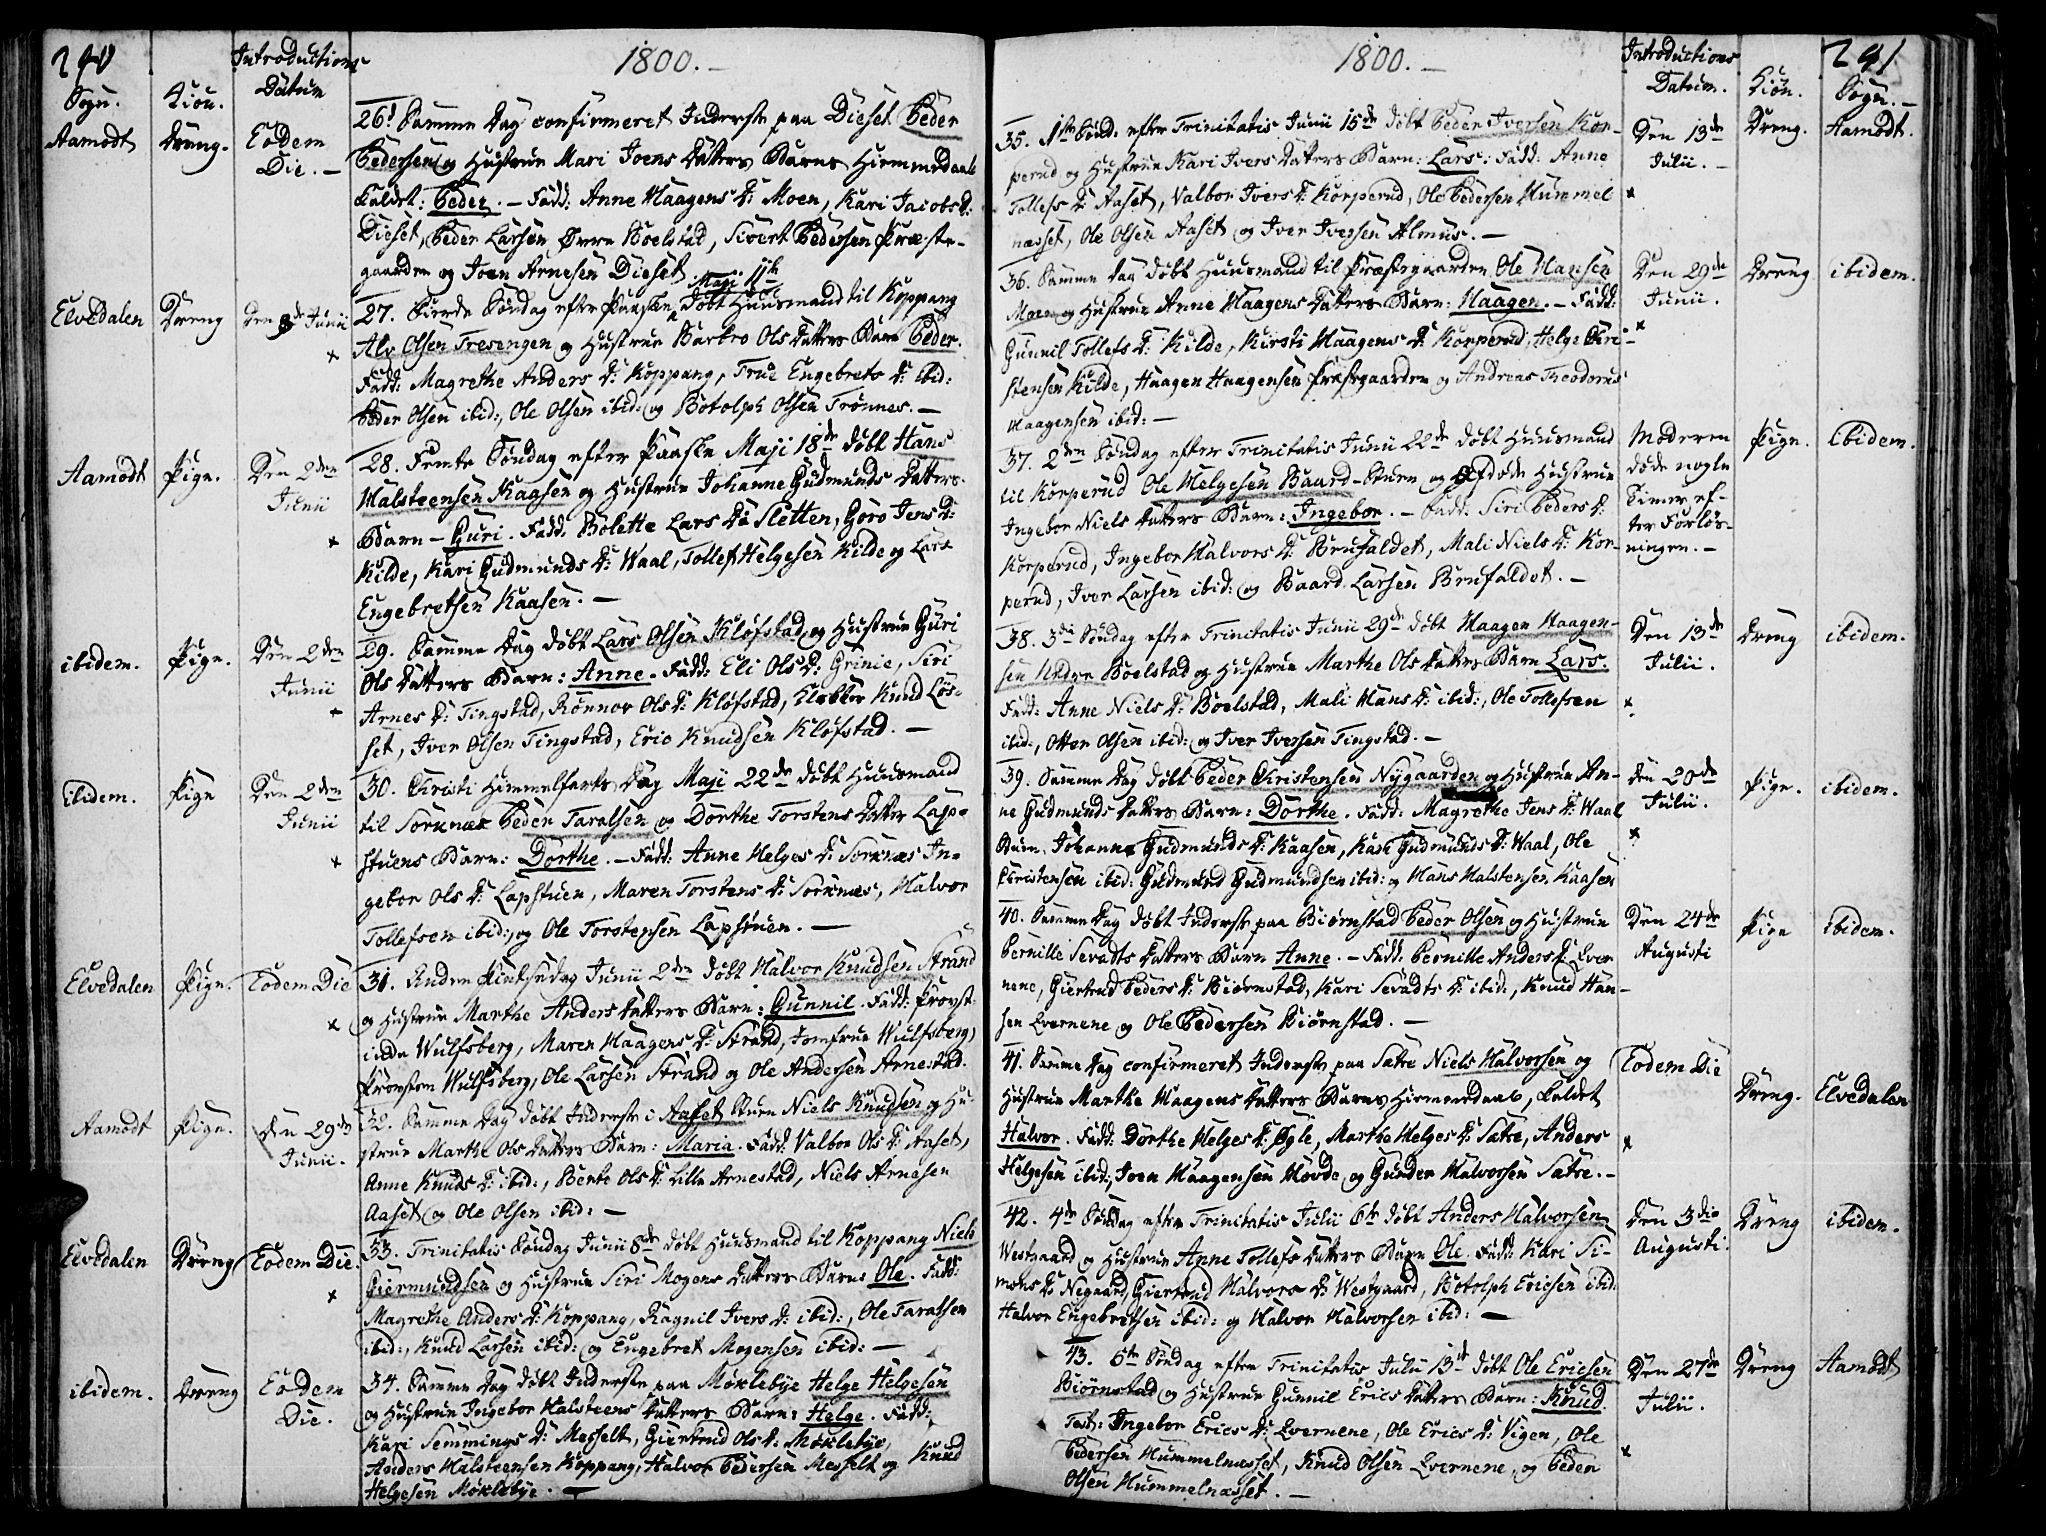 240
Introductions
Datum
1800.-
Sogn.
Kiön.
Aamodt
Dreng.
Eodem
Die. -
26. Samme Dag confirmeret Inderste paa Dieset Peder
Pedersen og Hustrue Mari Joens Datters Barns Hiemmedaab
kaldt: Peder. - Fadd: Anne Haagens D: Moen, Kari Jacobs D:
Dieset, Peder Larsen Øvre Boelstad, Sivert Pedersen Præste-
gaarden og Joen Arnesen Dieset
Elvedalen
Dreng
Den 8de Junii
x
27. Fierde Søndag efter Paaske Maji 11te Døbt Huusmand til Koppang
Alv Olsen Tresengen og Hustrue Barbro Ols Datters Barn Peder.
Fadd: Magrethe Anders D: Koppang, True Engebrets D: ibid:
Peder Olsen ibid:, Ole Olsen ibid: og Botolph Olsen Trønnes. -
Aamodt
Pige.
Den 2den
Junii
x
28. Femte Søndag efter Paaske Maji 18de døbt Hans
Halsteensen Kaasen og Hustrue Johanne Gudmunds Datters
Barn - Guri. Fadd: Bolette Lars D: Sletten, Goro Jens D:
Kilde, Kari Gudmunds D: Waal, Tollef Helgesen Kilde og Lars
Engebretsen Kaasen. -
ibidem.
Pige.
Den 2den
Junii
29. Samme Dag døbt Lars Olsen Kløfstad og Hustrue Guri
Ols Datters Barn: Anne. Fadd: Eli Ols D: Grinie, Siri
Arnes D: Tingstad, Rønnov Ols D: Kløfstad, Klokker Knud Løs-
set, Iver Olsen Tingstad, Eric Knudsen Kløfstad. -
ibidem.
Pige
Den 2den
Junii
x
30. Christi Himmelfarts Dag Maji 22de døbt Huusmand
til Sorknæs Peder Taralsen og Dorthe Torstens Datter Lap-
stuens Barn: Dorthe. - Fadd: Anne Helges D: Sorknæs In-
gebor Ols D: Lapstuen, Maren Torstens D: Sorknæs, Halvor
Tollefsen ibid:, og Ole Torstensen Lapstuen. -
Elvedalen
Pige.
Eodem Die
x
31. Anden Pintsedag Junii 2den døbt Halvor Knudsen Strand
og Hustrue Marthe Anders Datters Barn: Gunnil. Fadd: Provst-
inde Wulfsberg, Maren Haagens D: Strand, Jomfrue Wulfsberg,
Provsten Wulfsberg, Ole Larsen Strand og Ole Andersen Arnestad.
Aamodt
Pige.
Den 29de
Junii.
32. Samme Dag døbt Inderste i Aaset Stuen Niels Knudsen og Hu-
strue Marthe Ols Datters Barn: Maria. Fadd: Valbor Ols D: Aaset,
Anne Knuds D: ibid:, Berte Ols D: Lille Arnestad, Niels Arnesen
Aaset og Ole Olsen ibid: -
Elvedalen
Dreng
Eodem Die.
x
33. Trinitatis Søndag Junii 8de døbt Huusmand til Koppang Niels
Giermundsen og Hustrue Siri Mogens Datters Barn Ole. Fadd:
Magrethe Anders D: Koppang, Ragnil Ivers D: ibid:, Ole Taralsen
ibid:, Knud Larsen ibid: og Engebret Mogensen ibid: -
ibidem.
Dreng
Eodem
Die.
34. Samme Dag døbt Inderste paa Møklebye Helge Helgesen
og Hustrue Ingebor Halsteens Datters Barn: Helge. Fadd:
Kari Semmings D: Messelt, Giertrud Ols D: Møklebye,
Anders Halsteensen Koppang, Halvor Pedersen Messelt og Knud
Helgesen Møklebye. -
1800. -
Introductions
Datum.
Kiön.
241
Sogn. -
35. 1ste Sønd: efter Trinitatis Junii 15de døbt Peder Iversen Kor-
perud og Hustrue Kari Ivers Datters Barn: Lars: Fadd: Anne
Tollefs D: Aaset, Valbor Ivers D: Korperud, Ole Pedersen Hummel
næsset, Ole Olsen Aaset og Iver Iversen Almus. -
Den 13de
Julii. -
x
Dreng.
Aamodt.
36. Samme Dag døbt Huusmand til Præstegaarden Ole Hansen
Moen og Hustrue Anne Haagens Datters Barn: Haagen. - Fadd:
Gunnil Tollefs D: Kilde, Kirsti Haagens D: Korperud, Helge Chri-
stensen Kilde, Haagen Haagensen Præstegaarden og Andreas Theodorus
Haagensen ibid: -
Den 29de
Junii.
x
Dreng
ibidem.
37. 2den Søndag efter Trinitatis Junii 22de døbt Huusmand
til Korperud Ole Helgesen Baard-Stuen og Afdøde Hustrue
Ingebor Niels Datters Barn: Ingebor. - Fadd: Siri Peders D:
Korperud, Ingebor Halvors D: Brufaldet, Mali Niels D: Kor-
perud, Iver Larsen ibid: og Baard Larsen Brufaldet. -
Moderen
døde nogle
Timer ef-
ter Forløs-
ningen. -
Pige.
ibidem.
38. 3die Søndag efter Trinitatis Junii 29de døbt Haagen Haagen-
sen Nedre Boelstad og Hustrue Marthe Ols Datters Barn Lars.
Fadd: Anne Niels D: Boelstad, Mali Hans D: ibid:, Ole Tollefsen
ibid:, Otter Olsen ibid: og Iver Iversen Tingstad. -
Den 13de
Julii.
x
Dreng
ibidem.
39. Samme Dag døbt Peder Christensen Nygaarden og Hustrue An-
ne Gudmunds Datters Barn: Dorthe. Fadd: Magrethe Jens D: Waal
Stuen, Johanne Gudmunds D: Kaasen, Kari Gudmunds D: Waal, Ole
Christensen ibid: Gudmund Gudmundsen ibid: og Hans Halstensen Kaasen
Den 20de
Julii.
x
Pige.
ibidem.
40. Samme Dag døbt Inderste paa Biørnstad Peder Olsen og Hustrue
Pernille Sevadts Datters Barn Anne. - Fadd: Pernille Anders D: Ever
nene, Giertrud Peders D: Biørnstad, Kari Sevadts D: ibid:, Knud Han-
sen Evernene og Ole Pedersen Biørnstad. -
Den 24de
Augusti
Pige
ibidem.
41. Samme Dag confirmeret Inderste paa Sætre Niels Halvorsen og
Hustrue Marthe Haagens Datters Barns Hiemmedaab, kaldet
Halvor. Fadd: Dorthe Helges D: Øgle, Marthe Helges D: Sætre, Anders
Helgesen ibid:, Joen Haagensen Hovde og Gunder Halvorsen Sætre. -
Eodem Die
x
Dreng.
Elvedalen
42. 4de Søndag efter Trinitatis Julii 6te døbt Anders Halvorsen
Westgaard og Hustrue Anne Tollefs Datters Barn Ole. Fadd: Kari Si-
mens D: Negaard, Giertrud Halvors D: Westgaard, Botolph Ericsen ibid:
Halvor Engebretsen ibid: og Halvor Halvorsen ibid: -
Den 3die
Augusti.
Dreng
ibidem.
43. 5te Søndag efter Trinitatis Julii 13de døbt Ole Ericsen
Biørnstad og Hustrue Gunnil Erics Datters Barn: Knud.
Test: Ingebor Erics D: Evernene, Ole Erics D: Vigen, Ole
Pedersen Hummelnæsset, Knud Olsen Evernene, og Peder
Olsen Hummelnæsset. -
Den 27de
Julii.
x
Dreng
Aamodt